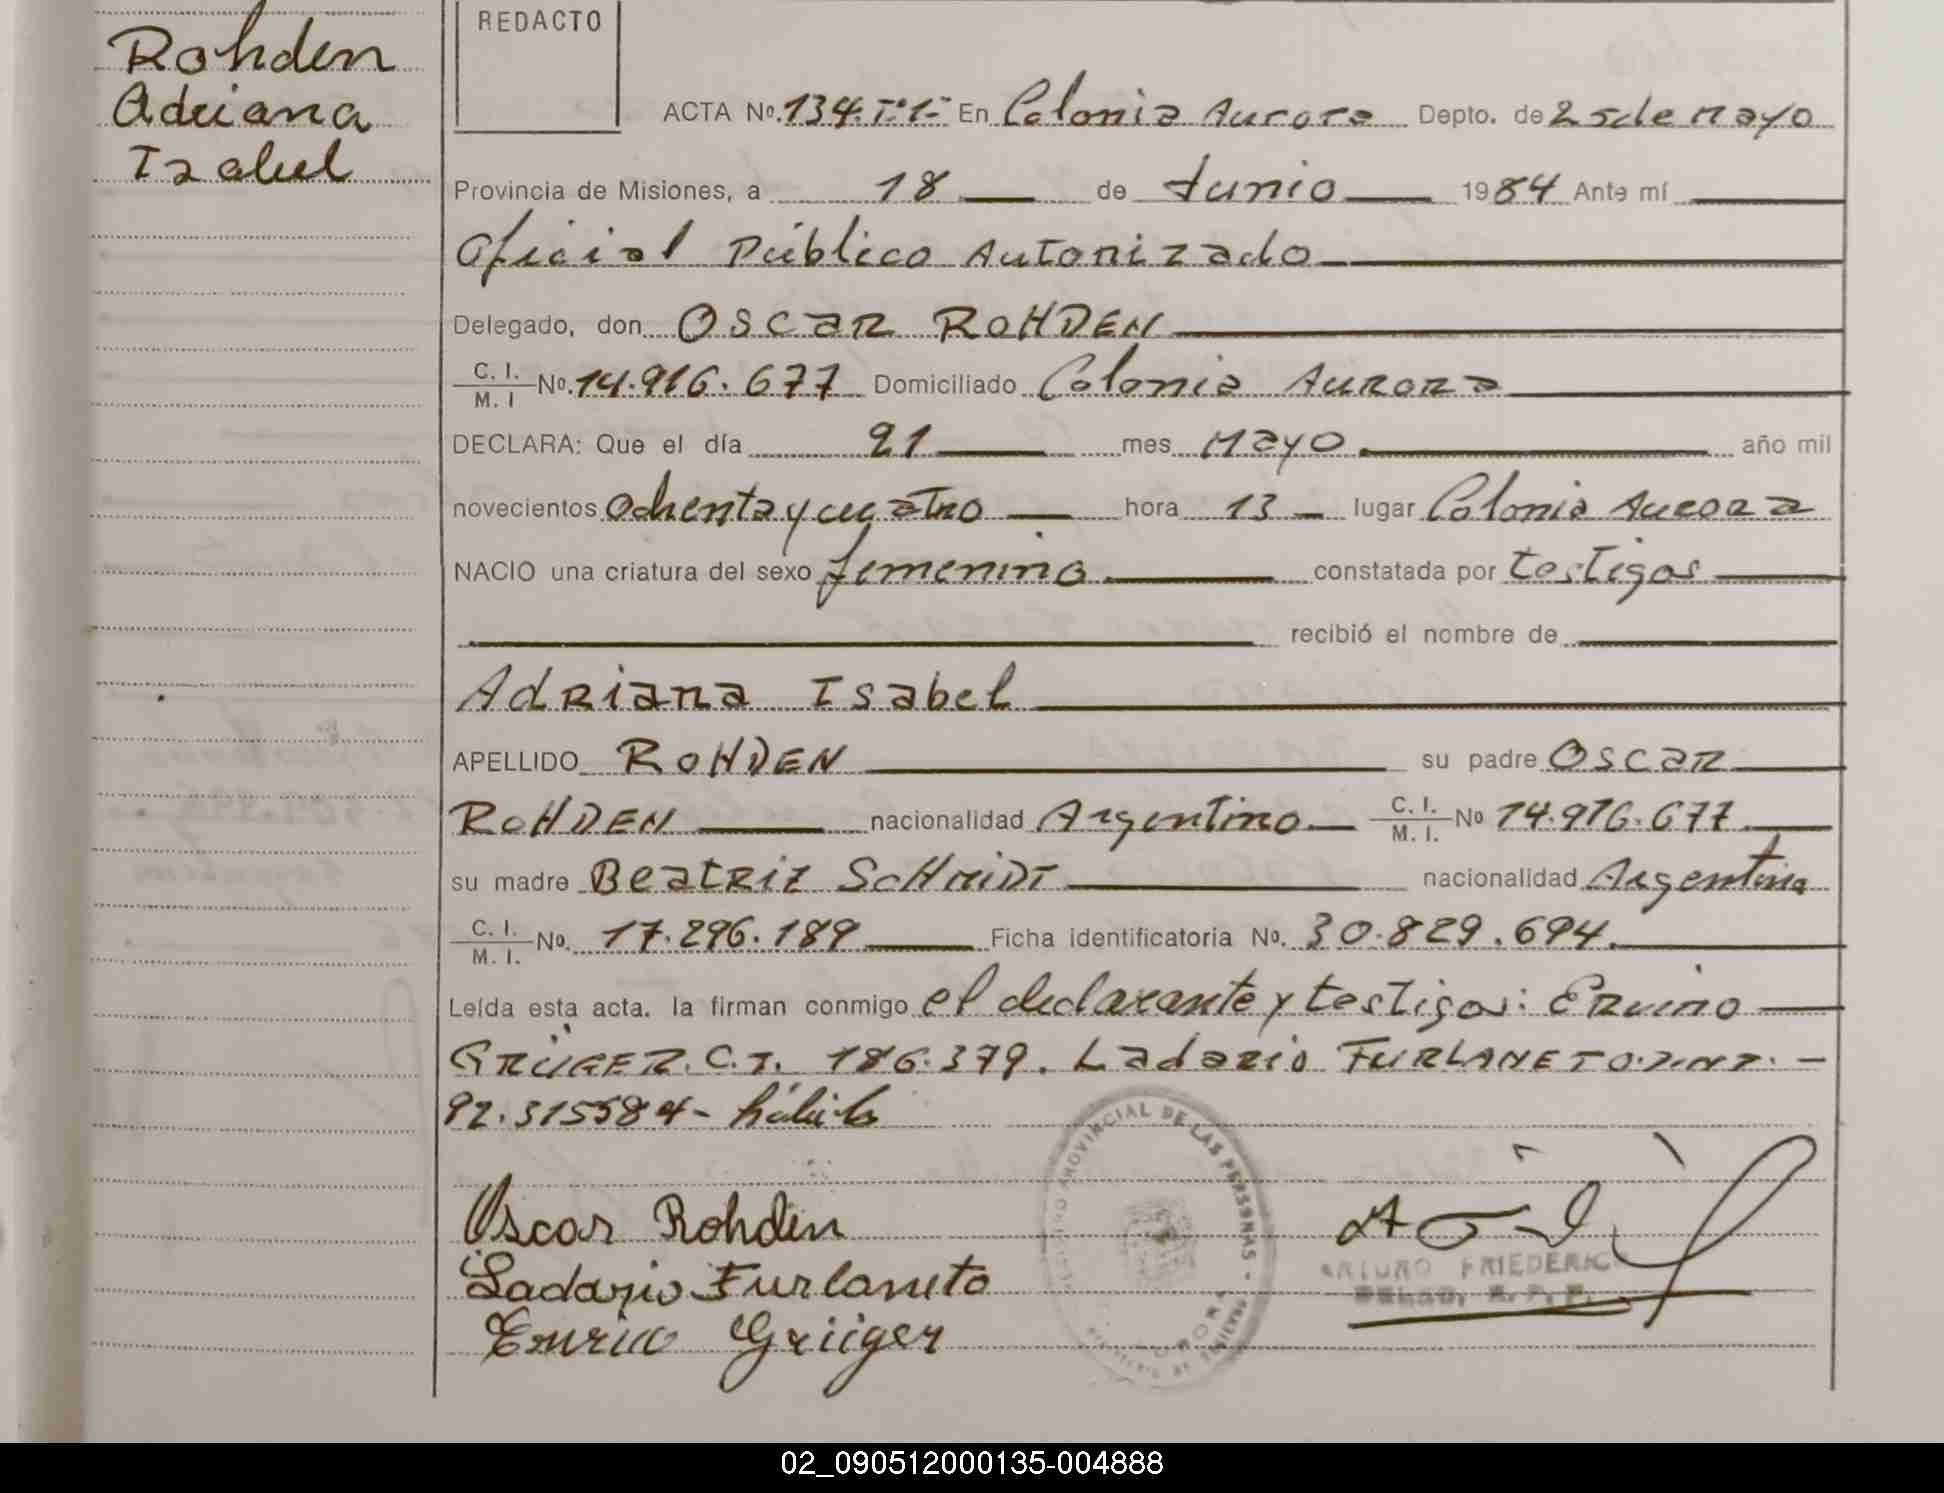 Rohden
Adriana
Izabel
REDACTO
ACTA No. 134. Tº1º- En Colonia Aurora Depto. de 25 de Mayo
Provincia de Misiones, a 18 de Junio 1984 Ante mí
Oficial Público Autorizado
Delegado, don OSCAR ROHDEN
C. I. / M. I No. 14.916.677 Domiciliado Colonia Aurora
DECLARA: Que el día 21 mes Mayo año mil
novecientos ochenta y cuatro hora 13 lugar Colonia Aurora
NACIO una criatura del sexo femenino constatada por testigos
recibió el nombre de
Adriana Isabel
APELLIDO ROHDEN su padre OSCAR
ROHDEN nacionalidad Argentino C. I. / M. I. No 14.916.677
su madre Beatriz SCHMIDT nacionalidad Argentina
C. I. / M. I. No. 17.296.189 Ficha identificatoria No. 30.829.694.
Leída esta acta. la firman conmigo el declarante y testigos: Ervino
GRÜGER. C.I. 186.379. Ladario FURLANETO. D.N.I. -
92.315584- hábiles
Oscar Rohden
Ladario Furlaneto
Grüger
PROVINCIAL DE LAS PERSONAS
ARTURO FRIEDERIC
DELEG. R. P. P.
02_090512000135-004888